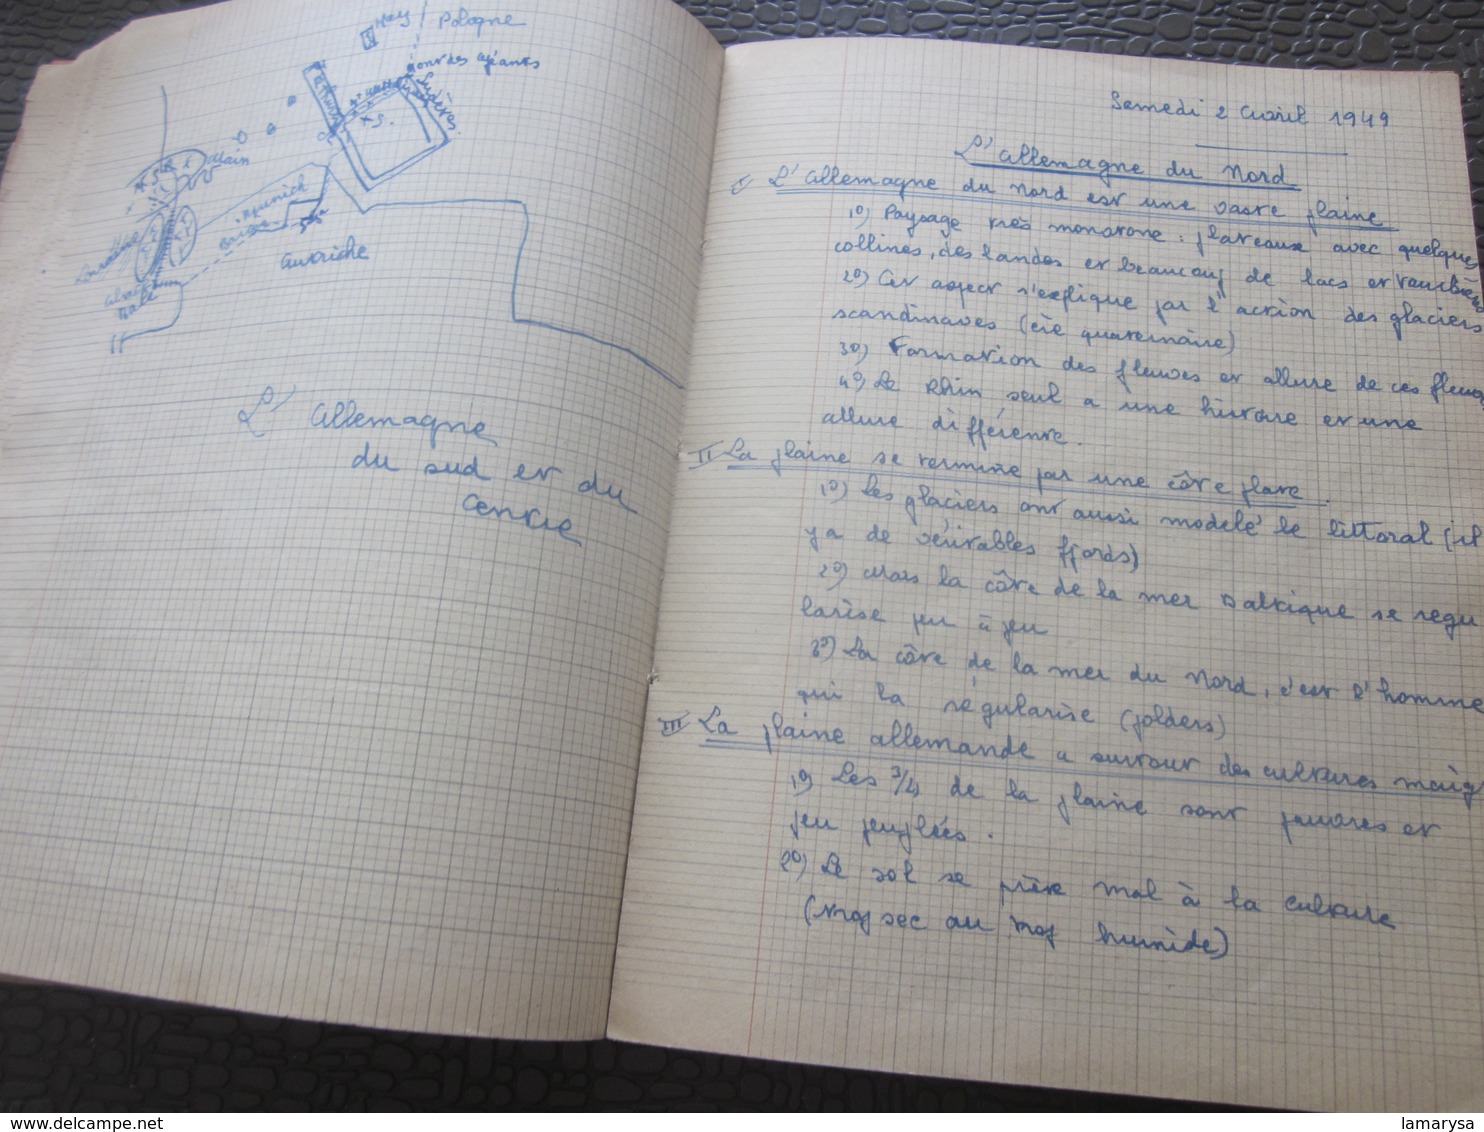 Pologne
Mont des Géants
Sudètes
Main
Munich
Lorraine
Autriche
L'Allemagne
du sud et du
centre
Samedi 2 Avril 1949
L'Allemagne du Nord
I L'Allemagne du nord est une vaste plaine
1°) Paysage très monotone : plateaux avec quelques
collines, des landes et beaucoup de lacs et tourbières
2°) Cet aspect s'explique par l'action des glaciers
scandinaves (ère quaternaire)
3°) Formation des fleuves et allure de ces fleuves
4°) Le Rhin seul a une histoire et une
allure différente.
II La plaine se termine par une côte plate.
1°) Les glaciers ont aussi modelé le littoral (il
y a de véritables fjords)
2°) Mais la côte de la mer Baltique se regu
larise peu à peu
3°) La côte de la mer du Nord, c'est l'homme
qui la régularise (polders)
III La plaine allemande a surtout des cultures maig
1°) Les 3/4 de la plaine sont pauvres et
peu peuplées.
2°) Le sol se prête mal à la culture
(trop sec ou trop humide)
delcampe.net
lamarysa